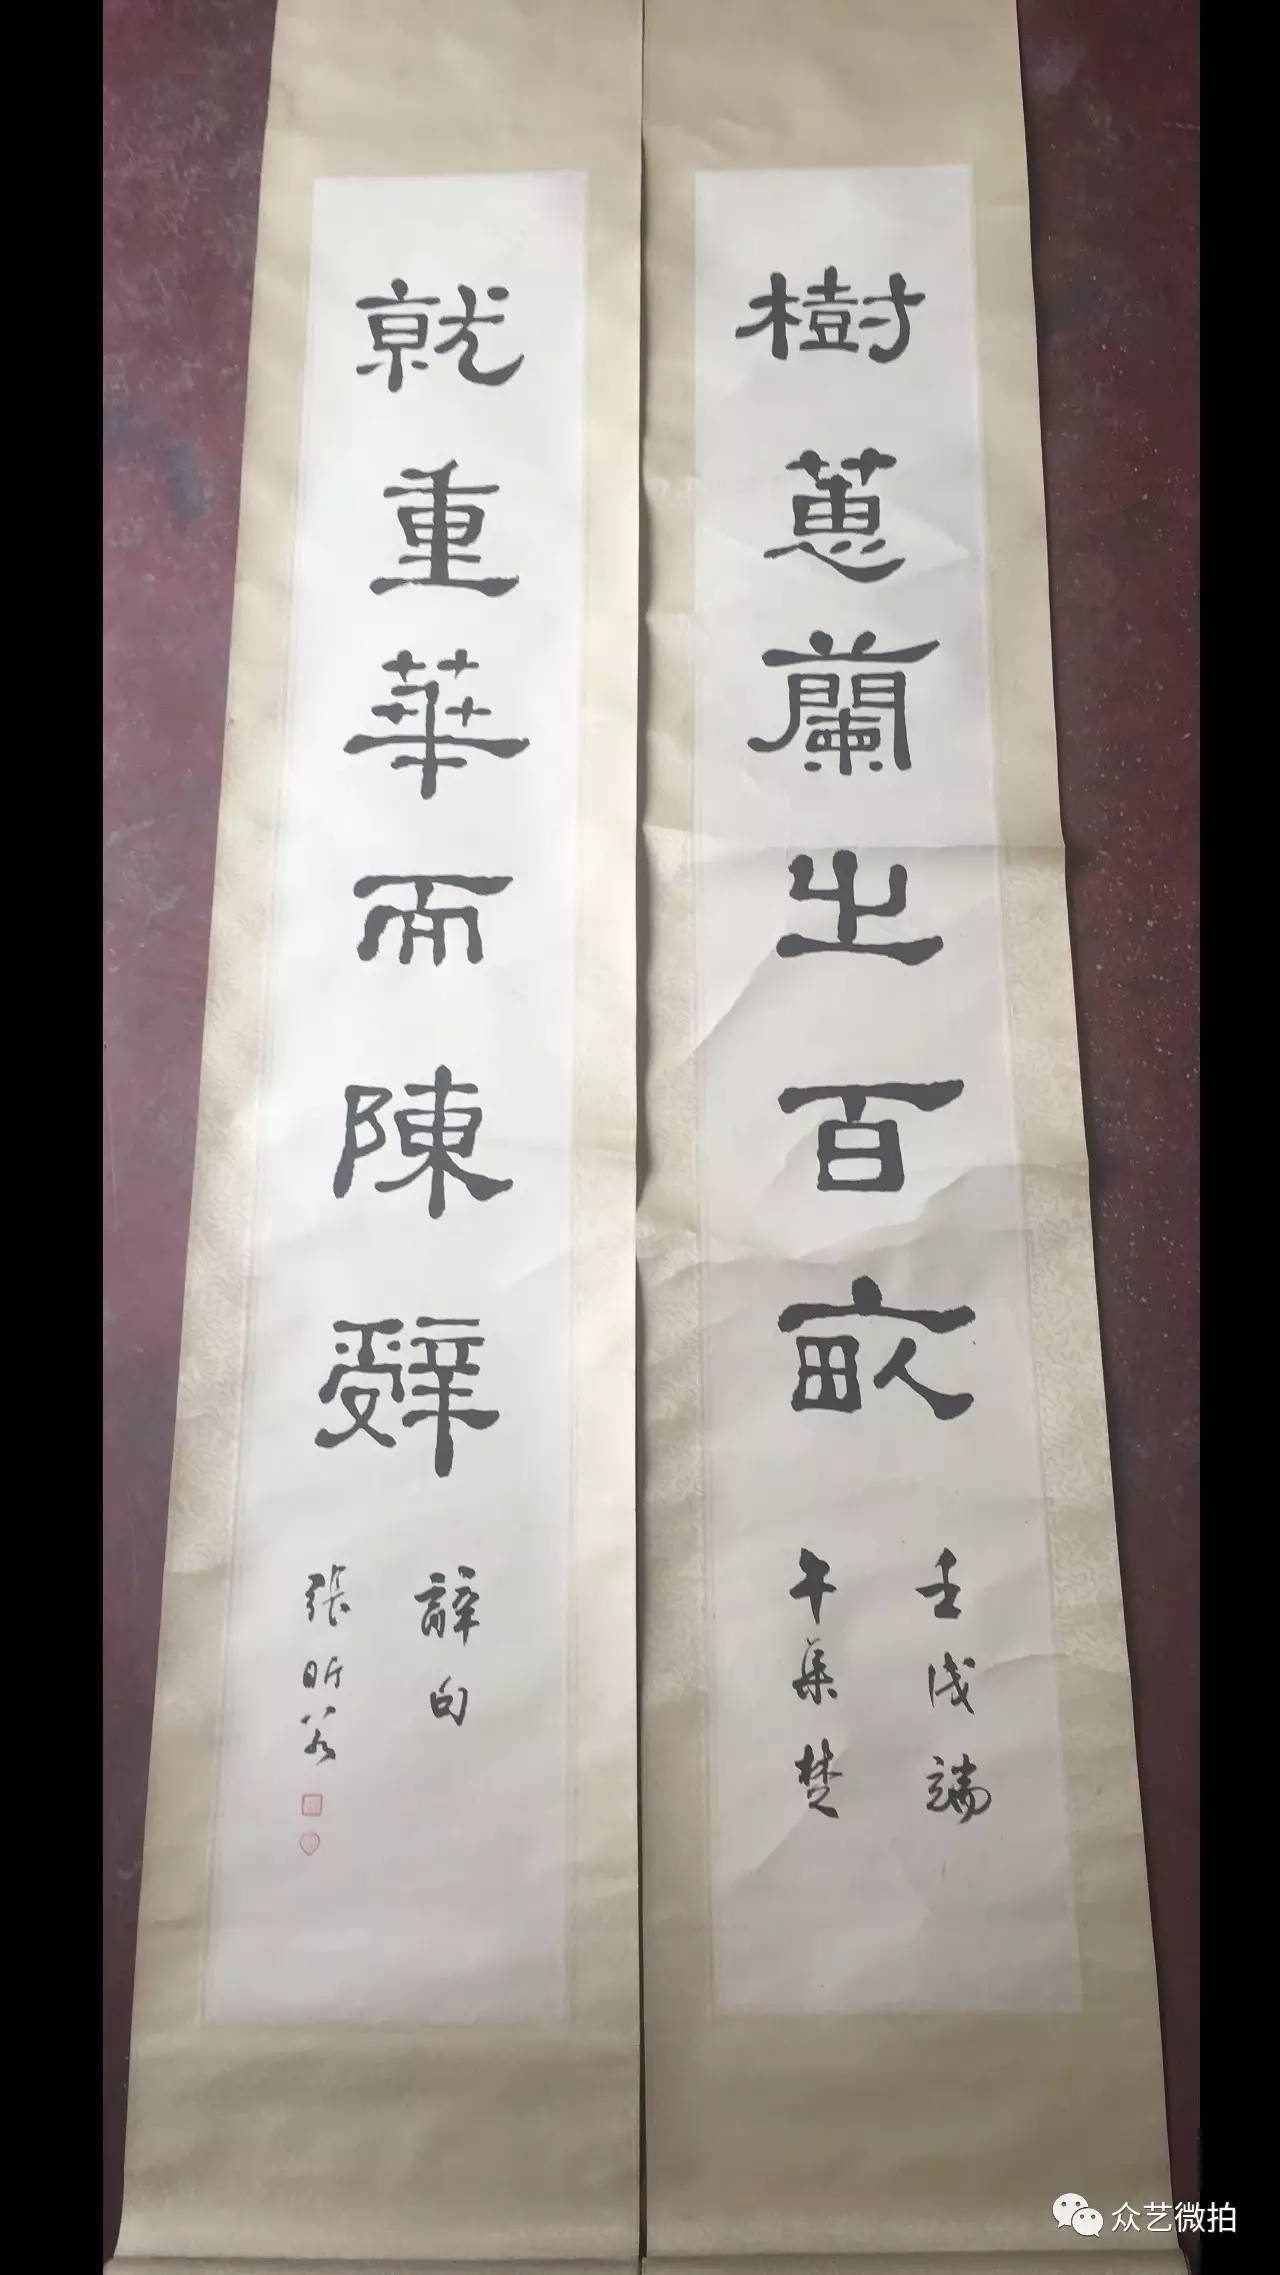 樹蕙蘭之百畝
壬戌端
午集楚
就重華而陳辤
辭句
張昕若
众艺微拍